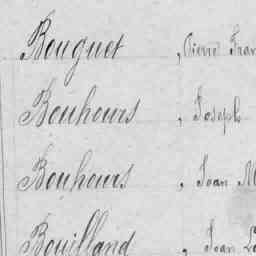 Bouguet, Pierre Fran
Bouhours, Joseph
Bouhours, Jean M
Bouilland, Jean L